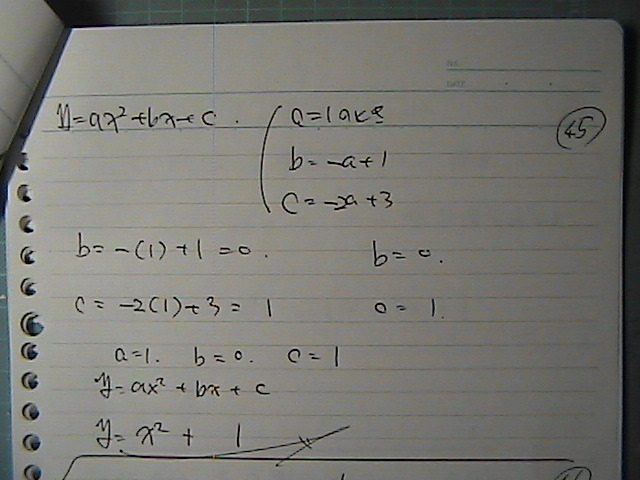 NO.
DATE
y=ax²+bx+c. a=1のとき
45
b=-a+1
c=-2a+3
b=-(1)+1=0. b=0.
c=-2(1)+3=1 c=1.
a=1. b=0. c=1
y=ax²+bx+c
y=x²+1